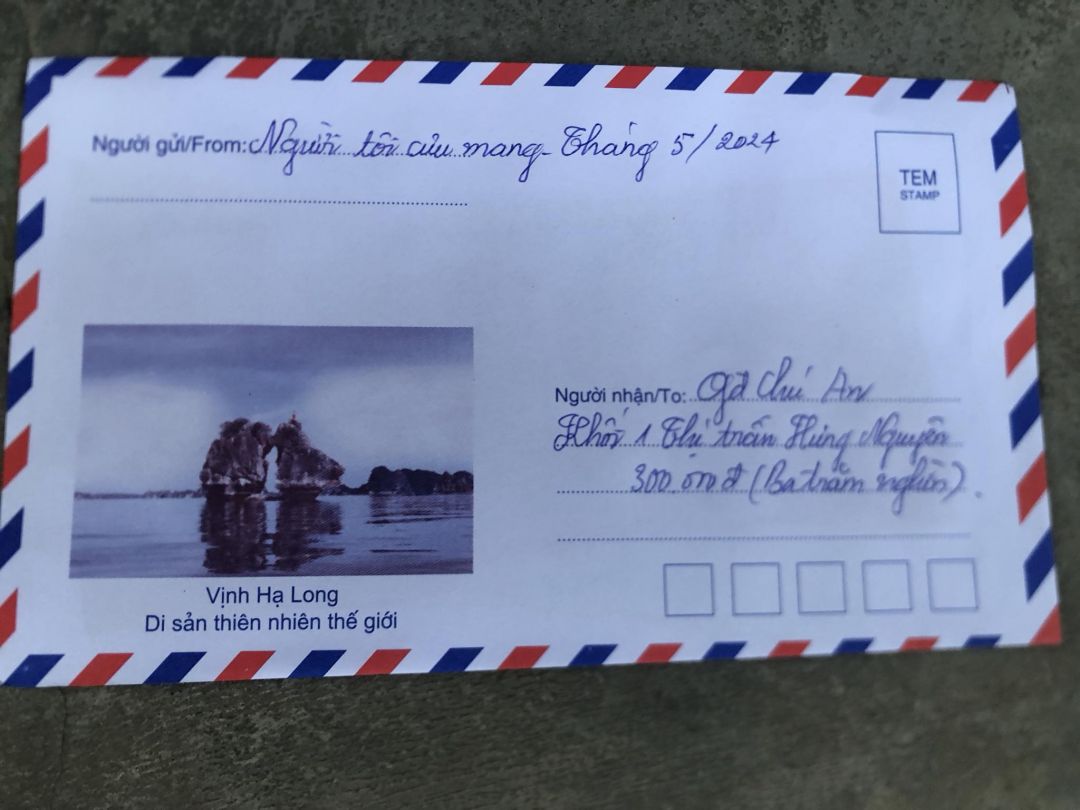 Người gửi/From: Người tôi cưu mang - Tháng 5/2024
TEM
STAMP
Người nhận/To: Gđ Chú An
Khối 1 Thị trấn Hưng Nguyên
300.000đ (Ba trăm nghìn).
Vịnh Hạ Long
Di sản thiên nhiên thế giới